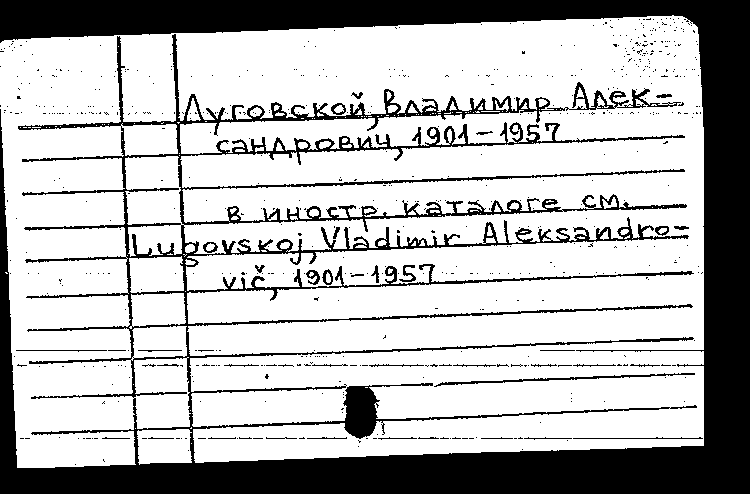 Луговской, Владимир Алек-
сандрович, 1901-1957
в иностр. каталоге см.
Lugovskoj, Vladimir Aleksandro-
vič, 1901-1957